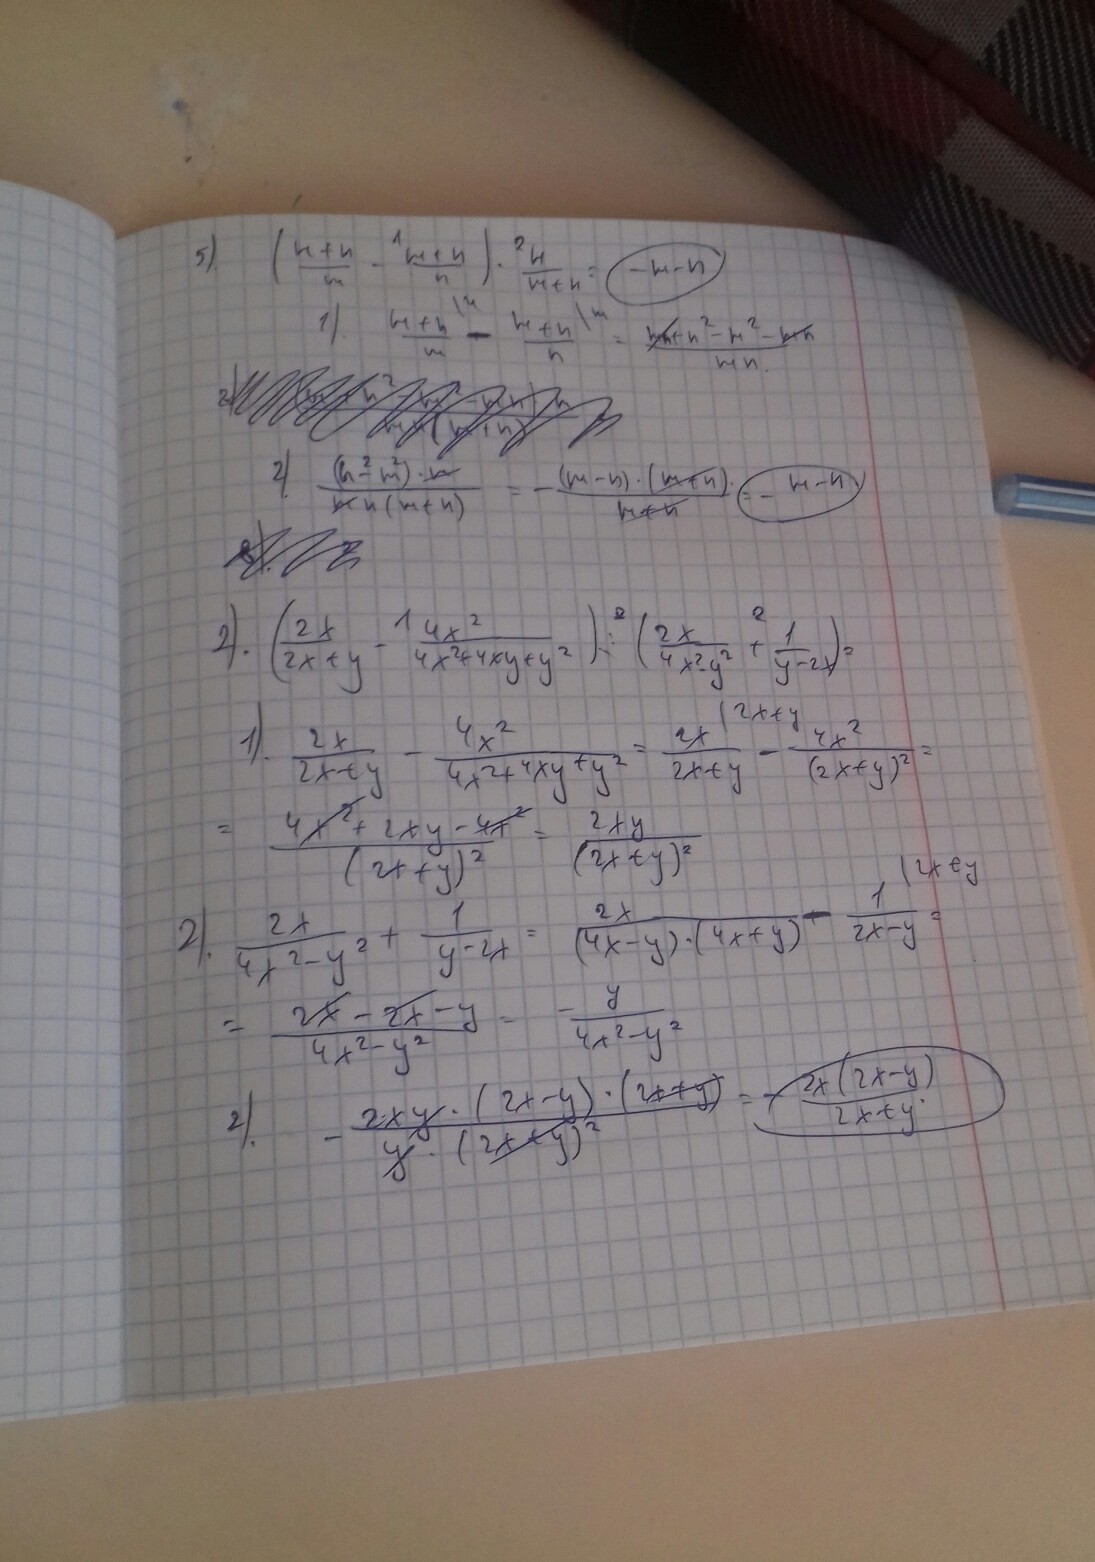 5) ( (m+n)/m - (m+n)/n ) · n/(m+n) = -m-n
1) (m+n)/m \n - (m+n)/n \m = (mn+n²-m²-mn)/mn.
2) ((n²-m²)·m)/(mn(m+n)) = -((m-n)·(m+n))/(m+n) = -m-n
2). ( 2x/(2x+y) - 4x²/(4x²+4xy+y²) ) : ( 2x/(4x²-y²) + 1/(y-2x) ) =
1). 2x/(2x+y) - 4x²/(4x²+4xy+y²) = 2x/(2x+y) |2x+y - 4x²/(2x+y)² =
= (4x²+2xy-4x²)/(2x+y)² = 2xy/(2x+y)²
2). 2x/(4x²-y²) + 1/(y-2x) = 2x/((4x-y)·(4x+y)) - 1/(2x-y) |2x+y =
= (2x-2x-y)/(4x²-y²) = -y/(4x²-y²)
2). -(2xy·(2x-y)·(2x+y))/(y·(2x+y)²) = -(2x(2x-y))/(2x+y).